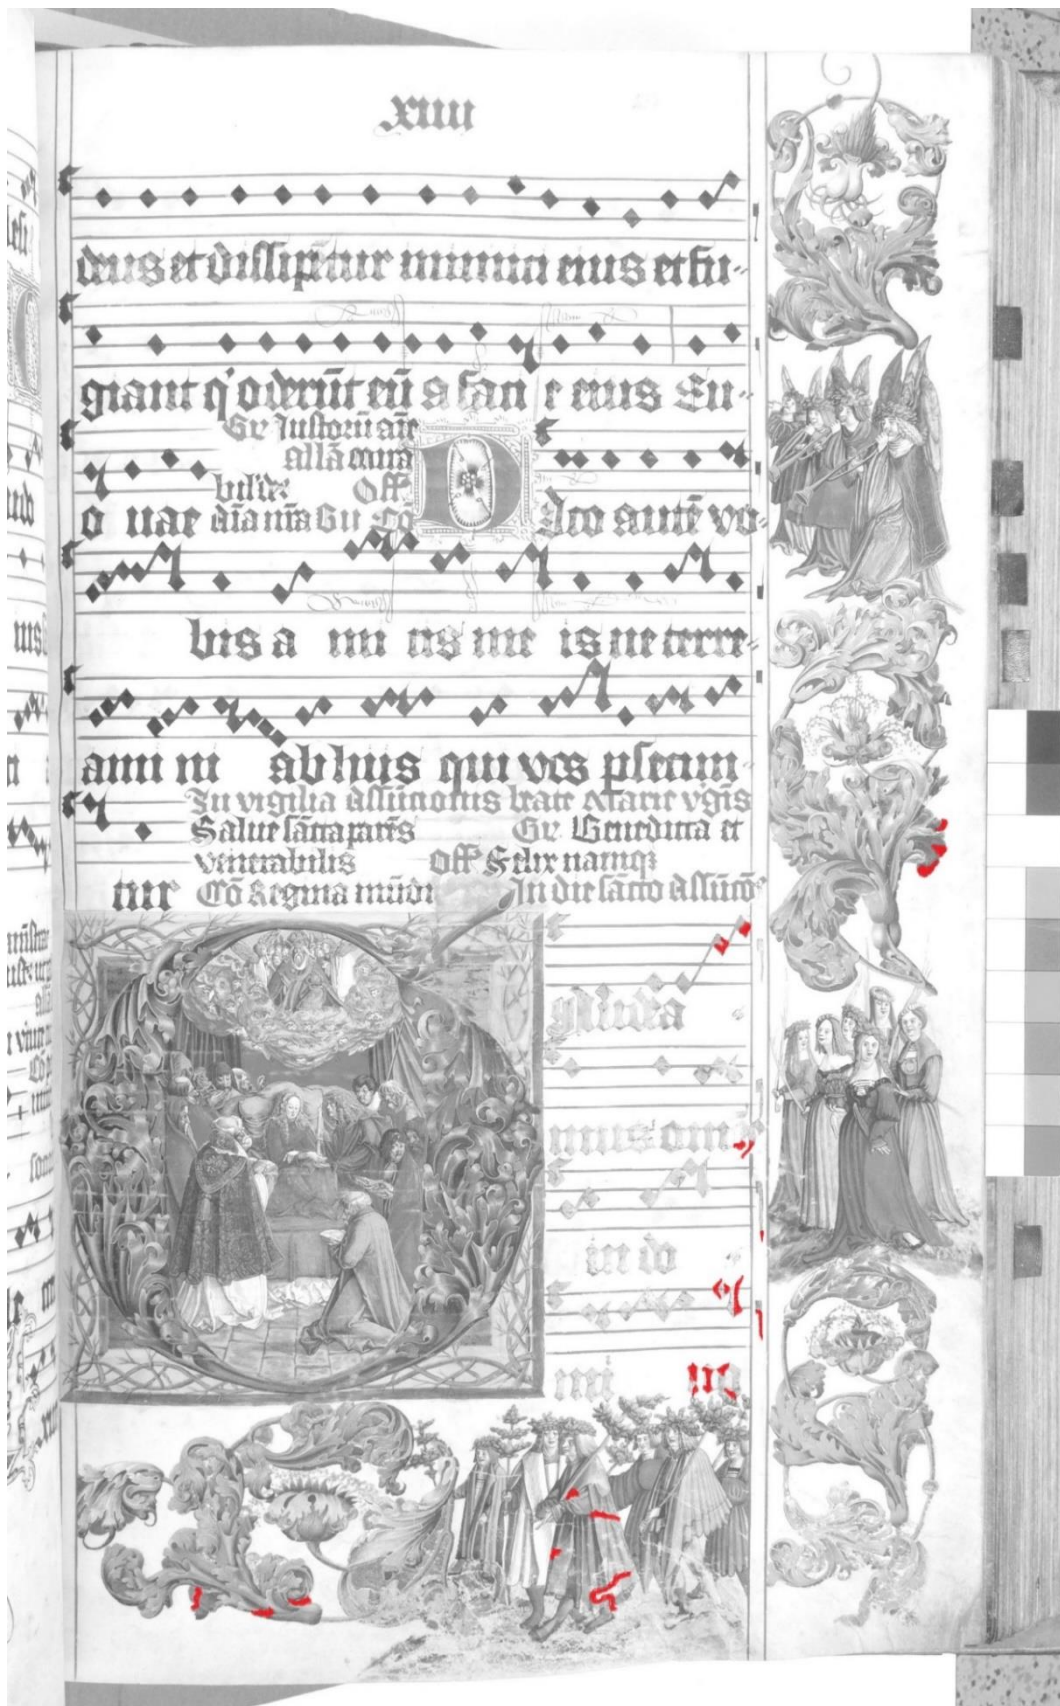 xiiii
deus et dissipẽtur inimici eius et fu-
giant q' oderũt eũ a faci e eius Eu-
Gr Justorũ aĩe
allã mira
bilis Off
o uae aĩa nr̃a Gr Cõ Dico autẽ vo-
bis a mi cis me is ne terre-
ami ni ab hiis qui vos psecun-
In vigilia Assũcionis beate Marie v'gĩs
Salue sãcta parẽs Gr Benedicta et
venerabilis Off Felix namqʒ
tur Cõ Regina mũdi In die sãcto Assũcõ
Gaudea
mus om
in do
mi